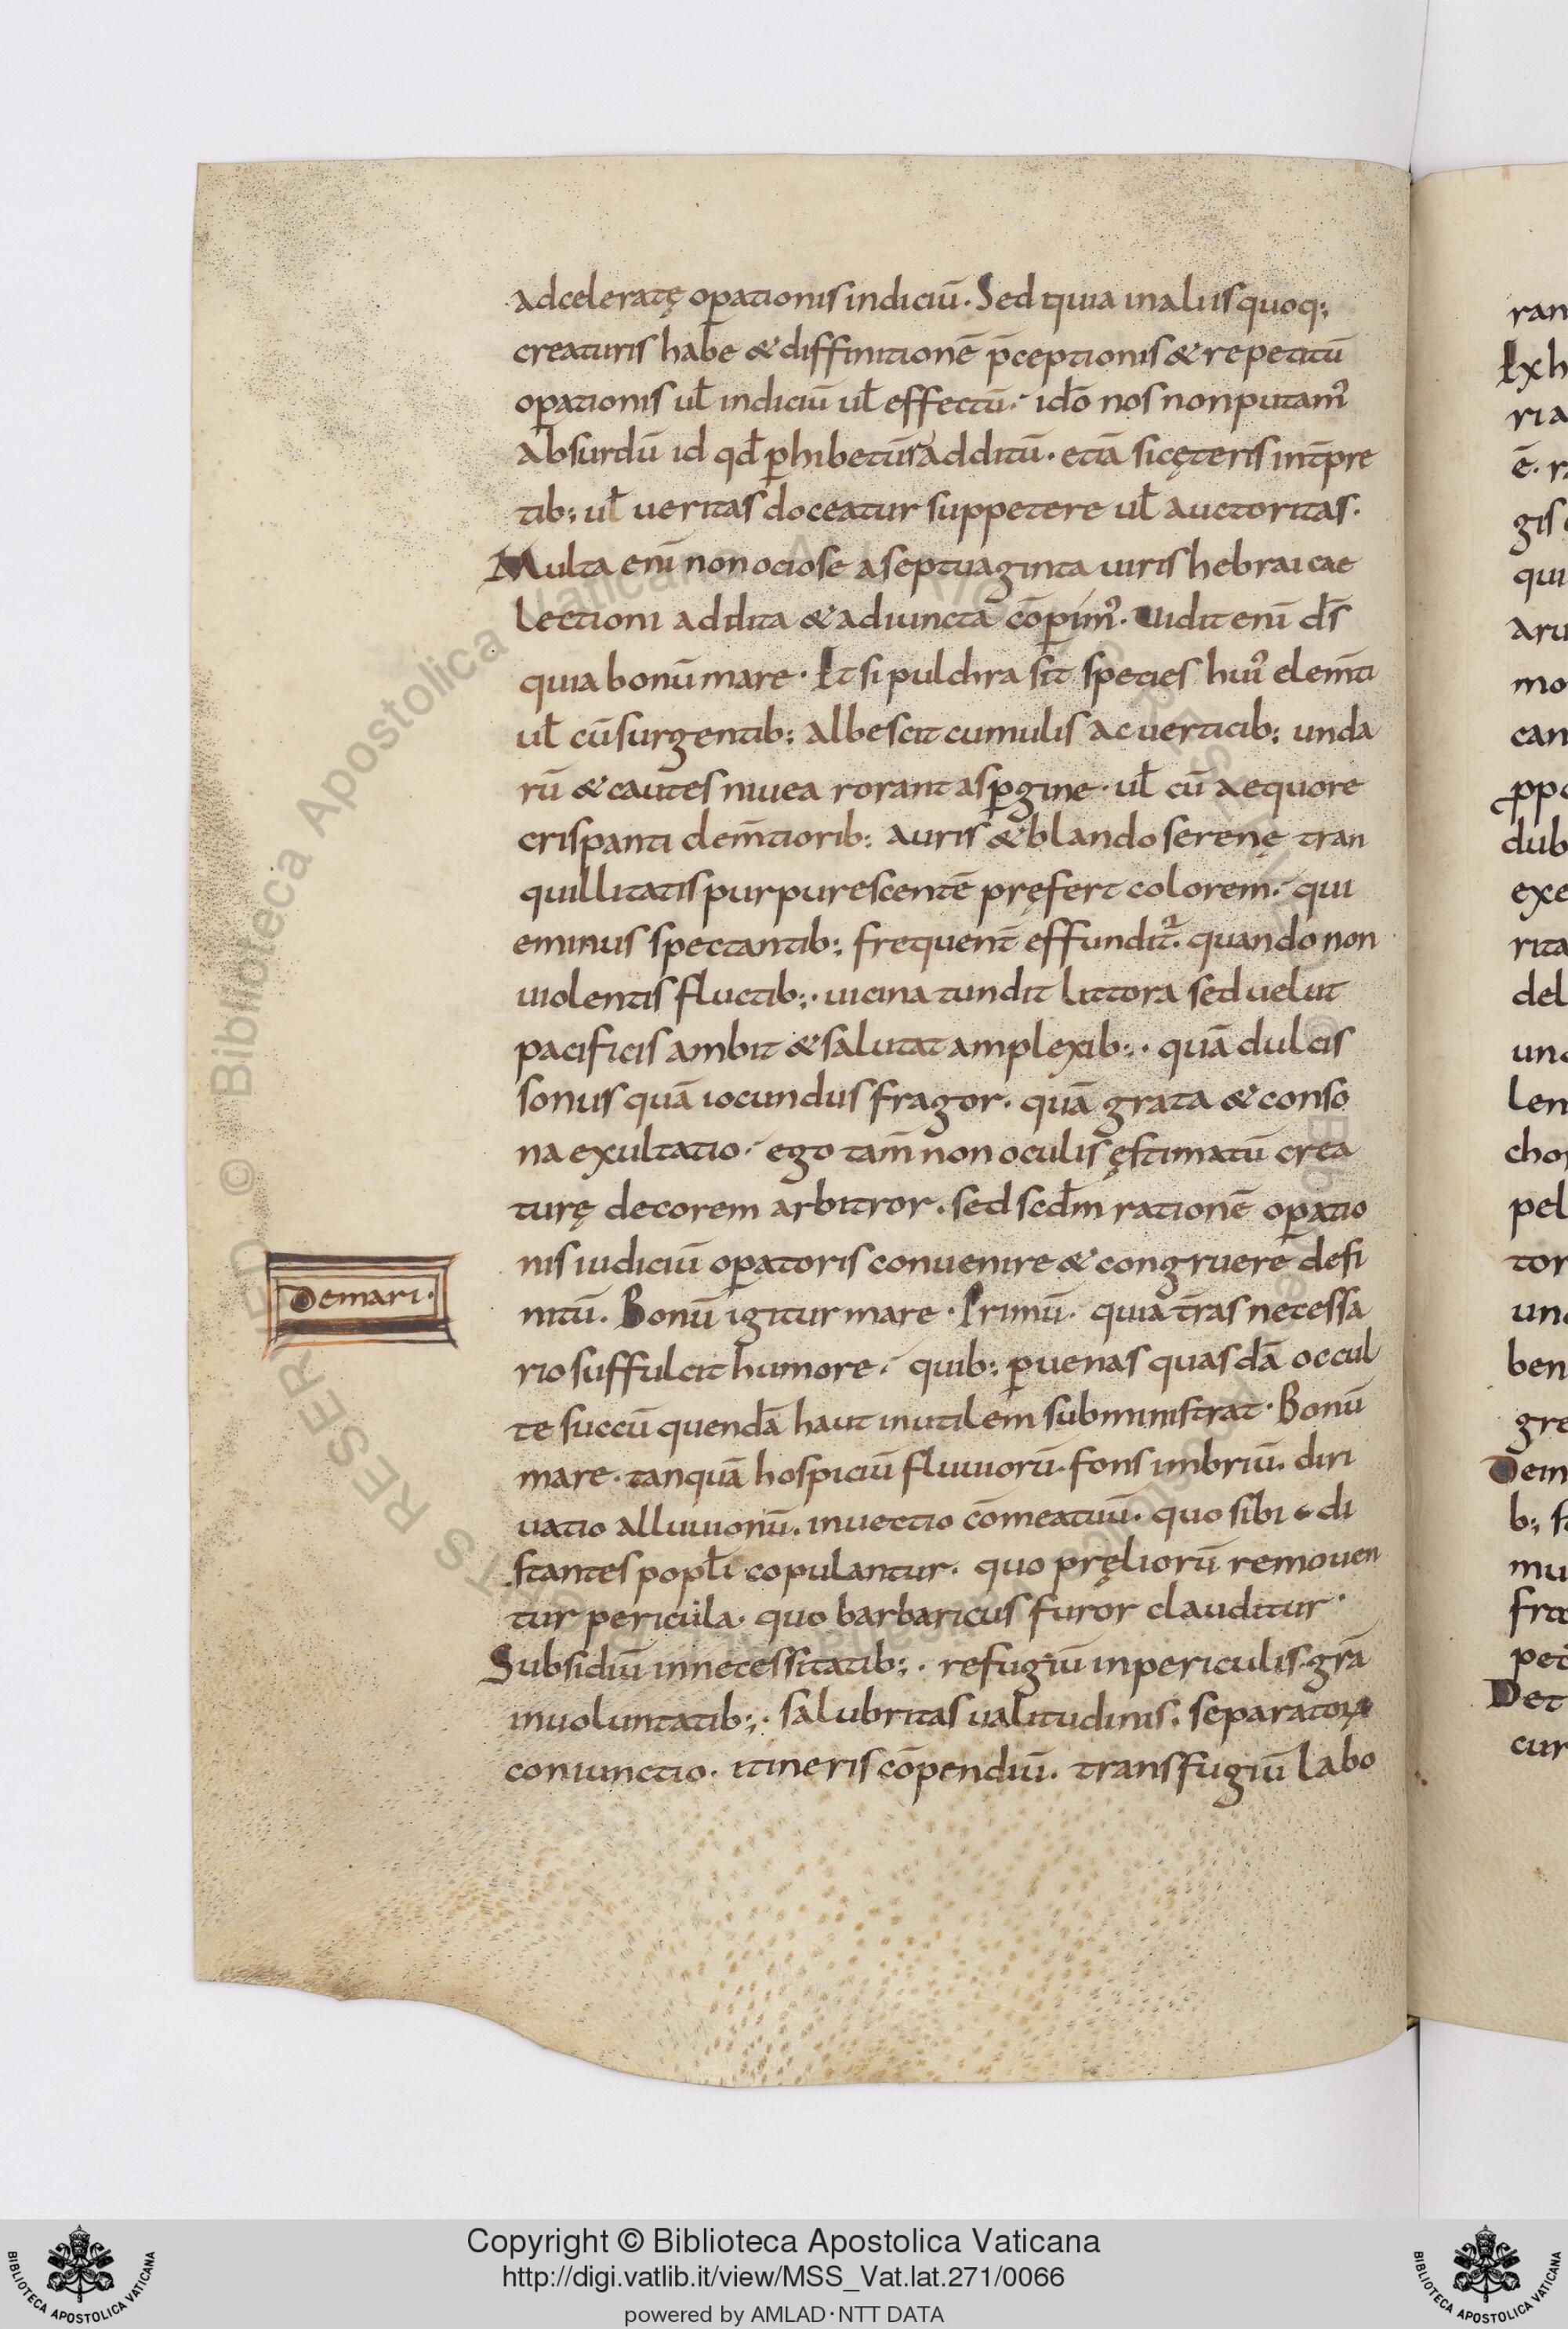 adceleratę op̲ationis indiciū. Sed quia inaliis quoq;
creaturis hab̄e & diffinitionē p̄ceptionis & repetitū
op̲ationis ul̄ indiciū ul̄ effectū. id̄o nos non putam᾽
absurdū id qd̄ p̲hibetur additū. etiā si cęteris int̄pre
tib; ul̄ ueritas doceatur suppetere ul̄ auctoritas.
Multa enī non ociose aseptuaginta uiris hebraicae
lectioni addita & adiuncta cōp̲im᾽. Uidit enī d̄s
quia bonū mare. Et si pulchra sit species hui᾽ elem̄ti
ul̄ cū surgentib; albescit cumulis ac uerticib; unda
rū & cautes niuea rorant asp̲gine. ul̄ cū aequore
crispanti clem̄tiorib; auris & blando serenę tran
quillitatis purpurescentē pręfert colorem. qui
eminus spectantib; frequent̄ effundit᾽. quando non
uiolentis fluctib;. uicina tundit littora sed uelut
pacificis ambit & salutat amplexib;. quā dulcis
sonus quā iocundus fragor. quā grata & conso
na exultatio. ego tam̄ non oculis ęstimatū crea
turę decorem arbitror. sed scd̄m rationē op̲atio
nis iudiciū op̲atoris conuenire & congruere defi
nitū. Bonū igitur mare. Primū. quia t̄ras necessa
Demari.
rio suffulcit humore. quib; p̲ uenas quasdā occul
te succū quendā haut inutilem subministrat. Bonū
mare. tanquā hospiciū fluuiorū. fons imbriū. diri
uatio alluuionū. inuectio cōmeatuū. quo sibi di
stantes popl̄i copulantur. quo pręliorū remouen
tur pericula. quo barbaricus furor clauditur.
Subsidiū innecessitatib;. refugiū inpericulis. grā
inuoluntatib;. salubritas ualitudinis. separatoꝝ
coniunctio. itineris cōpendiū. transfugiū labo
ran
Exh
ri a
ē. r
gis
qui
aru
mo
can
ꝓpo
dub
exe
rita
del
und
len
chor
pel
tor
und
ben
gre
Dem
b; s
mu
fra
pet
Det
cur
© Biblioteca Apostolica Vaticana
Copyright © Biblioteca Apostolica Vaticana
http://digi.vatlib.it/view/MSS_Vat.lat.271/0066
powered by AMLAD·NTT DATA
BIBLIOTECA APOSTOLICA VATICANA
BIBLIOTECA APOSTOLICA VATICANA